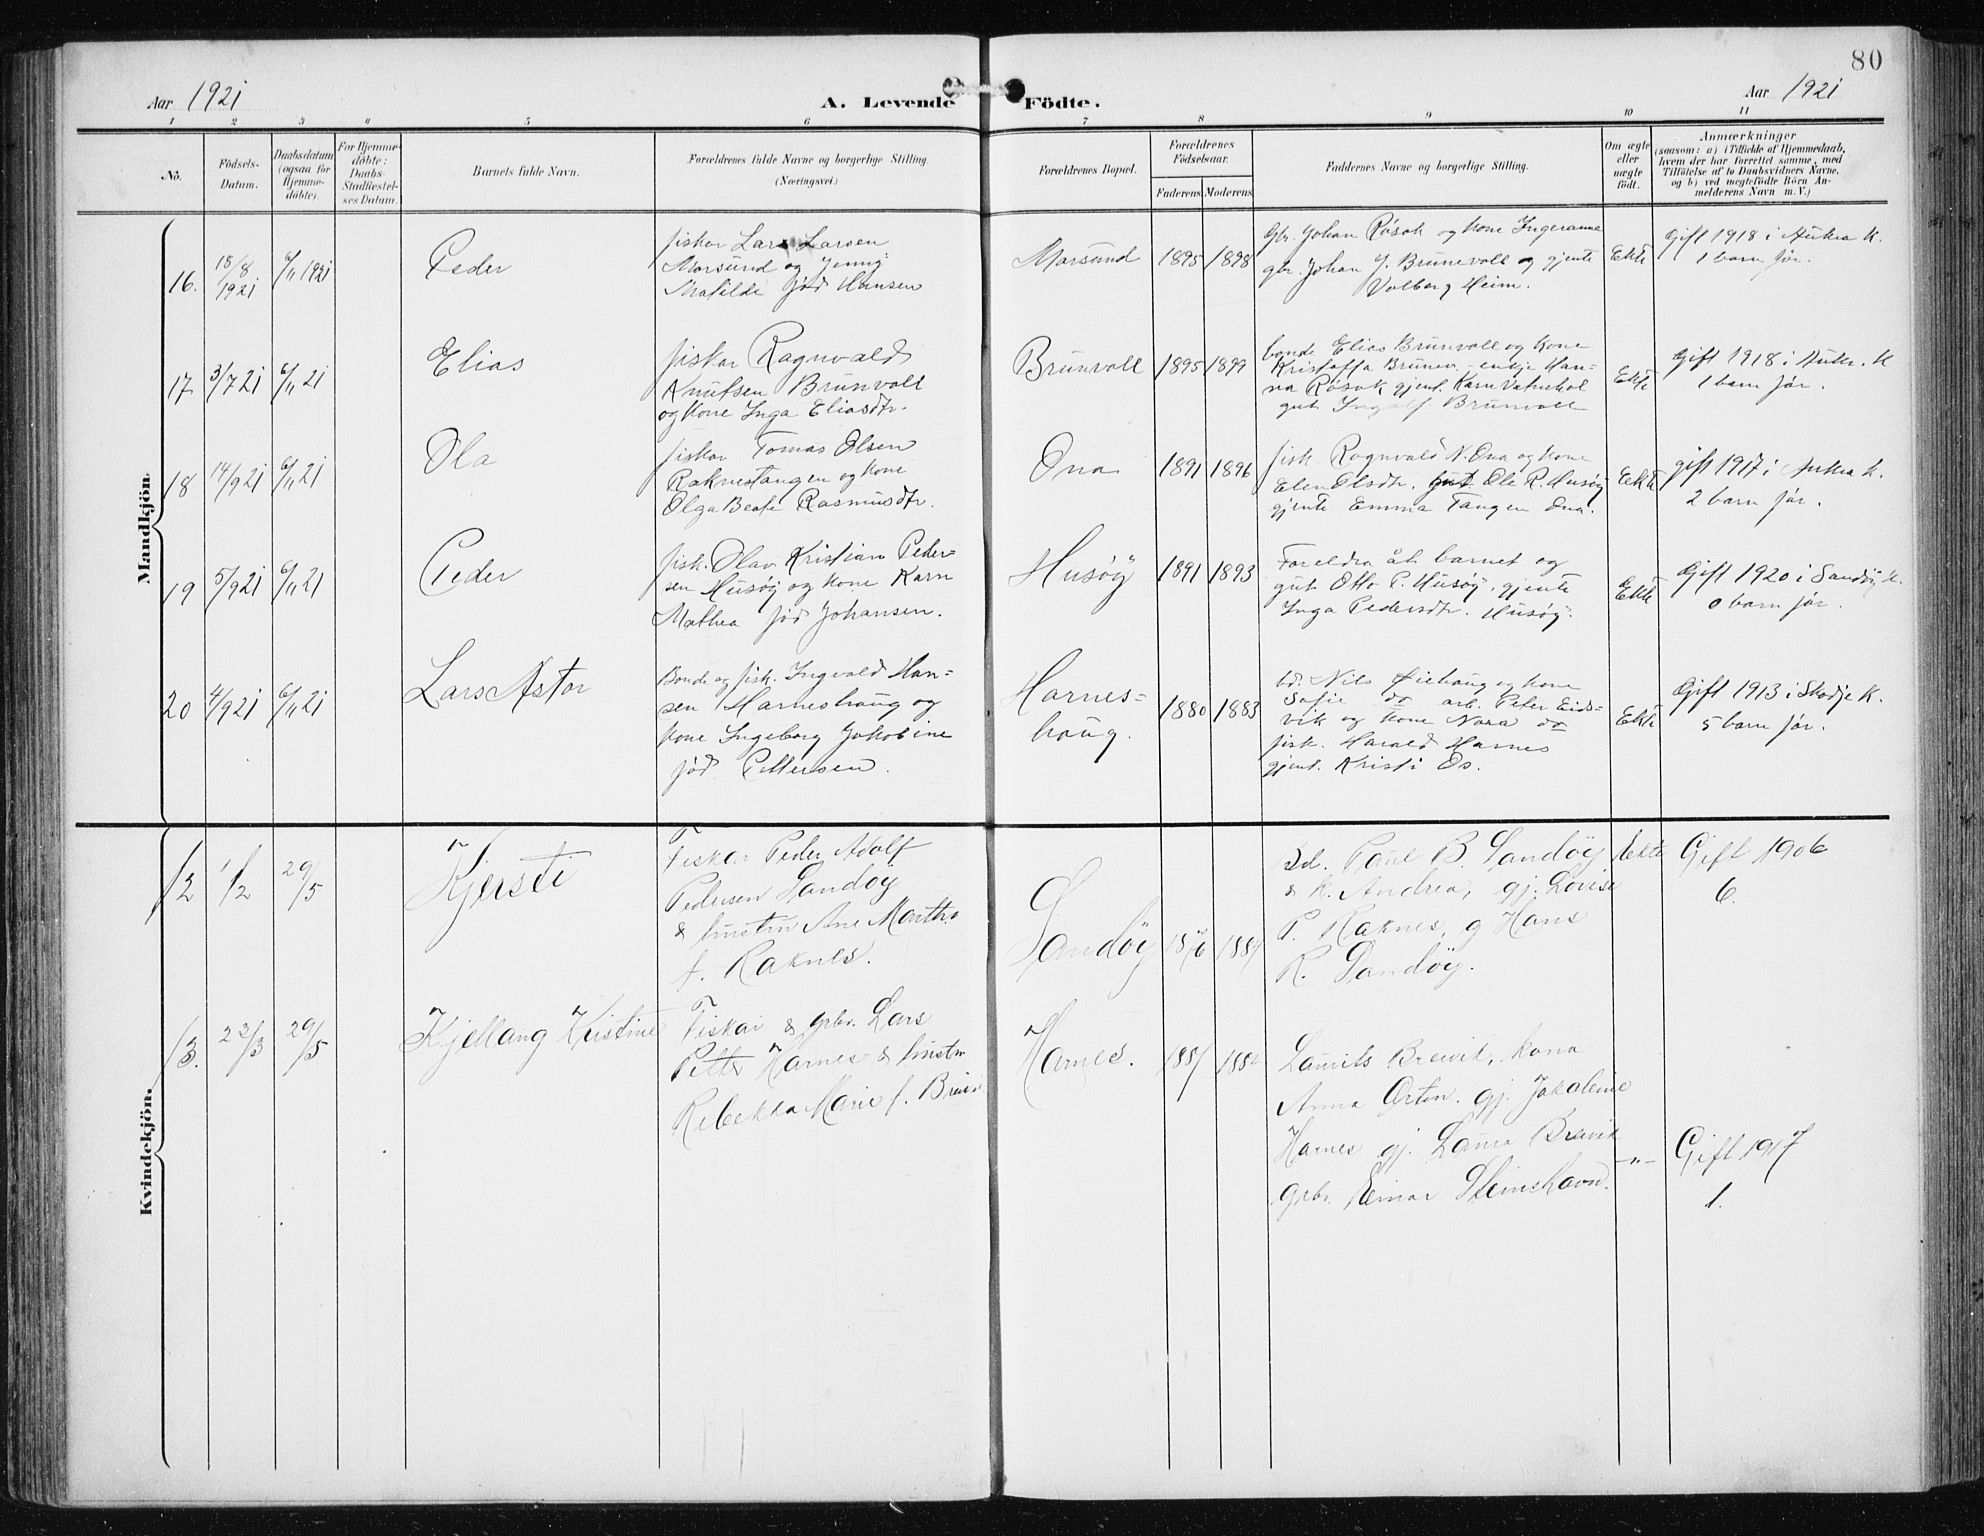 80
Aar 1921
A. Levende Födte.
Aar 1921
1 2 3 4 5 6 7 8 9 10 11
No.
Födsels-
Datum.
Daabsdatum
(ogsaa för
Hjemme-
döbte).
For Hjemme-
döbte:
Daabs-
Stadfæstel-
ses Datum.
Barnets fulde Navn.
Forældrenes fulde Navne og borgerlige Stilling.
(Næringsvei.)
Forældrenes Bopæl.
Forældrenes
Födselsaar.
Faderens Moderens
Faddernes Navne og borgerlige Stilling.
Om ægte
eller
uægte
födt.
Anmærkninger
(saasom: a) i Tilfælde af Hjemmedaab,
hvem der har forrettet samme, med
Tilföielse af to Daabsvidners Navne,
og b) ved uægtefödte Börn An-
melderens Navn m. V.)
Mandkjön.
16.
18/8
1921
6/11 1921
Peder
fiskar Lars Larsen
Morsund og Jenny
Matilde fød Hansen
Morsund
1895 1898
Gbr. Johan Røsok og kone Ingeranna
gbr. Johan J. Brunevoll og gjente
Valborg Heim.
Ekte
Gift 1918 i Aukra K.
1 barn før.
17
3/7 21
6/11 21
Elias
fiskar Ragnvald
Knutsen Brunvoll
og kone Inga Eliasdtr.
Brunvoll
1895 1899
bonde Elias Brunvoll og kone
Kristoffa Brunev. enkje Han-
na Røsok gjent. Karn Vatnehol
gut Ingolf Brunvoll
Ekte
Gift 1918 i Aukr. K
1 barn før.
18
14/9 21
6/11 21
Ola
fiskar Tomas Olsen
Raknestangen og kone
Olga Beate Rasmusdtr.
Ona
1891 1896
fisk. Ragnvald N. Ona og kone
Elen Olsdtr. gut Ole R. Husøy
gjente Emma Tangen Ona.
Ekte
gift 1917 i Aukra K.
2 barn før.
19
5/9 21
6/11 21
Peder
fisk. Olav Kristian Peder-
sen Husøy og kone Karn
Mathea fød Johansen.
Husøy
1891 1893
Foreldra åt barnet og
gut Otto P. Husøy, gjente
Inga Pedersdtr. Husøy.
Ekte
Gift 1920 i Sandøy K.
0 barn før.
20
4/9 21
6/11 21
Lars Astor
Bonde og fisk. Ingvald Han-
sen Harneshaug og
kone Ingeborg Jakobine
fød Pettersen.
Harnes-
haug.
1880 1883
bd. Nils Øiehaug og kone
Sofie do arb. Peter Eids-
vik og kone Nora do
fisk. Harald Harnes
gjent. Kristi Os.
Ekte
Gift 1913 i Skodje K.
5 barn før.
Kvindekjön.
12
1/2
29/5
Kjersti
Fiskar Peder Adolf
Pedersen Sandøy
& hustru Ane Marthe
f. Raknes.
Sandøy
1876
Bd. Paul B. Sandøy
& k. Andrea, gj. Lovise
P. Raknes, g Hans
R. Sandøy.
ekte
Gift 1906
6.
13.
22/3
29/5
Kjellaug Kristine
Fiskar & gbr. Lars
Petter Harnes & hustru
Rebekka Marie f. Breivik
Harnes.
Laurits Breivik, kona
Anna Orten. gj. Jakobine
Harnes gj. Laura Breivik
gbr. Einar Steinshavn.
-"-
Gift 1917
1.